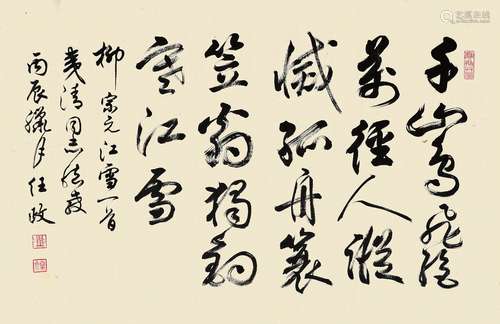 千山鳥飛絕
萬徑人蹤
滅孤舟蓑
笠翁獨釣
寒江雪
柳宗元江雪一首
清同志
丙辰臘月任政